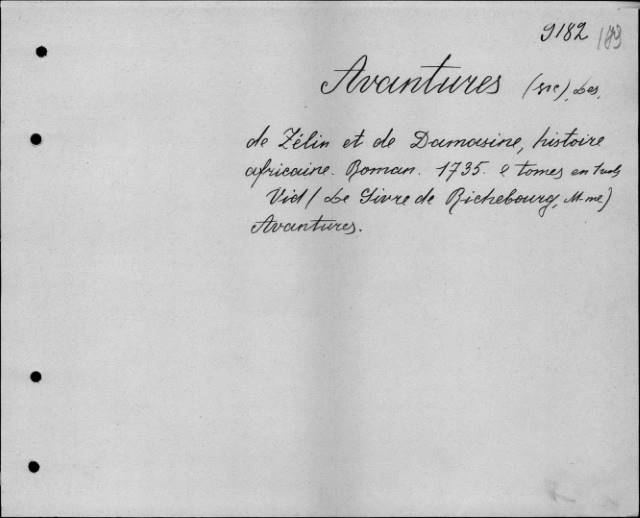 9182 183
Avantures (sic), Les,
de Zélin et de Damasine, histoire
africaine. Roman. 1735. 2 tomes en
Vid (Le Givre de Richebourg, M-me)
Avantures.